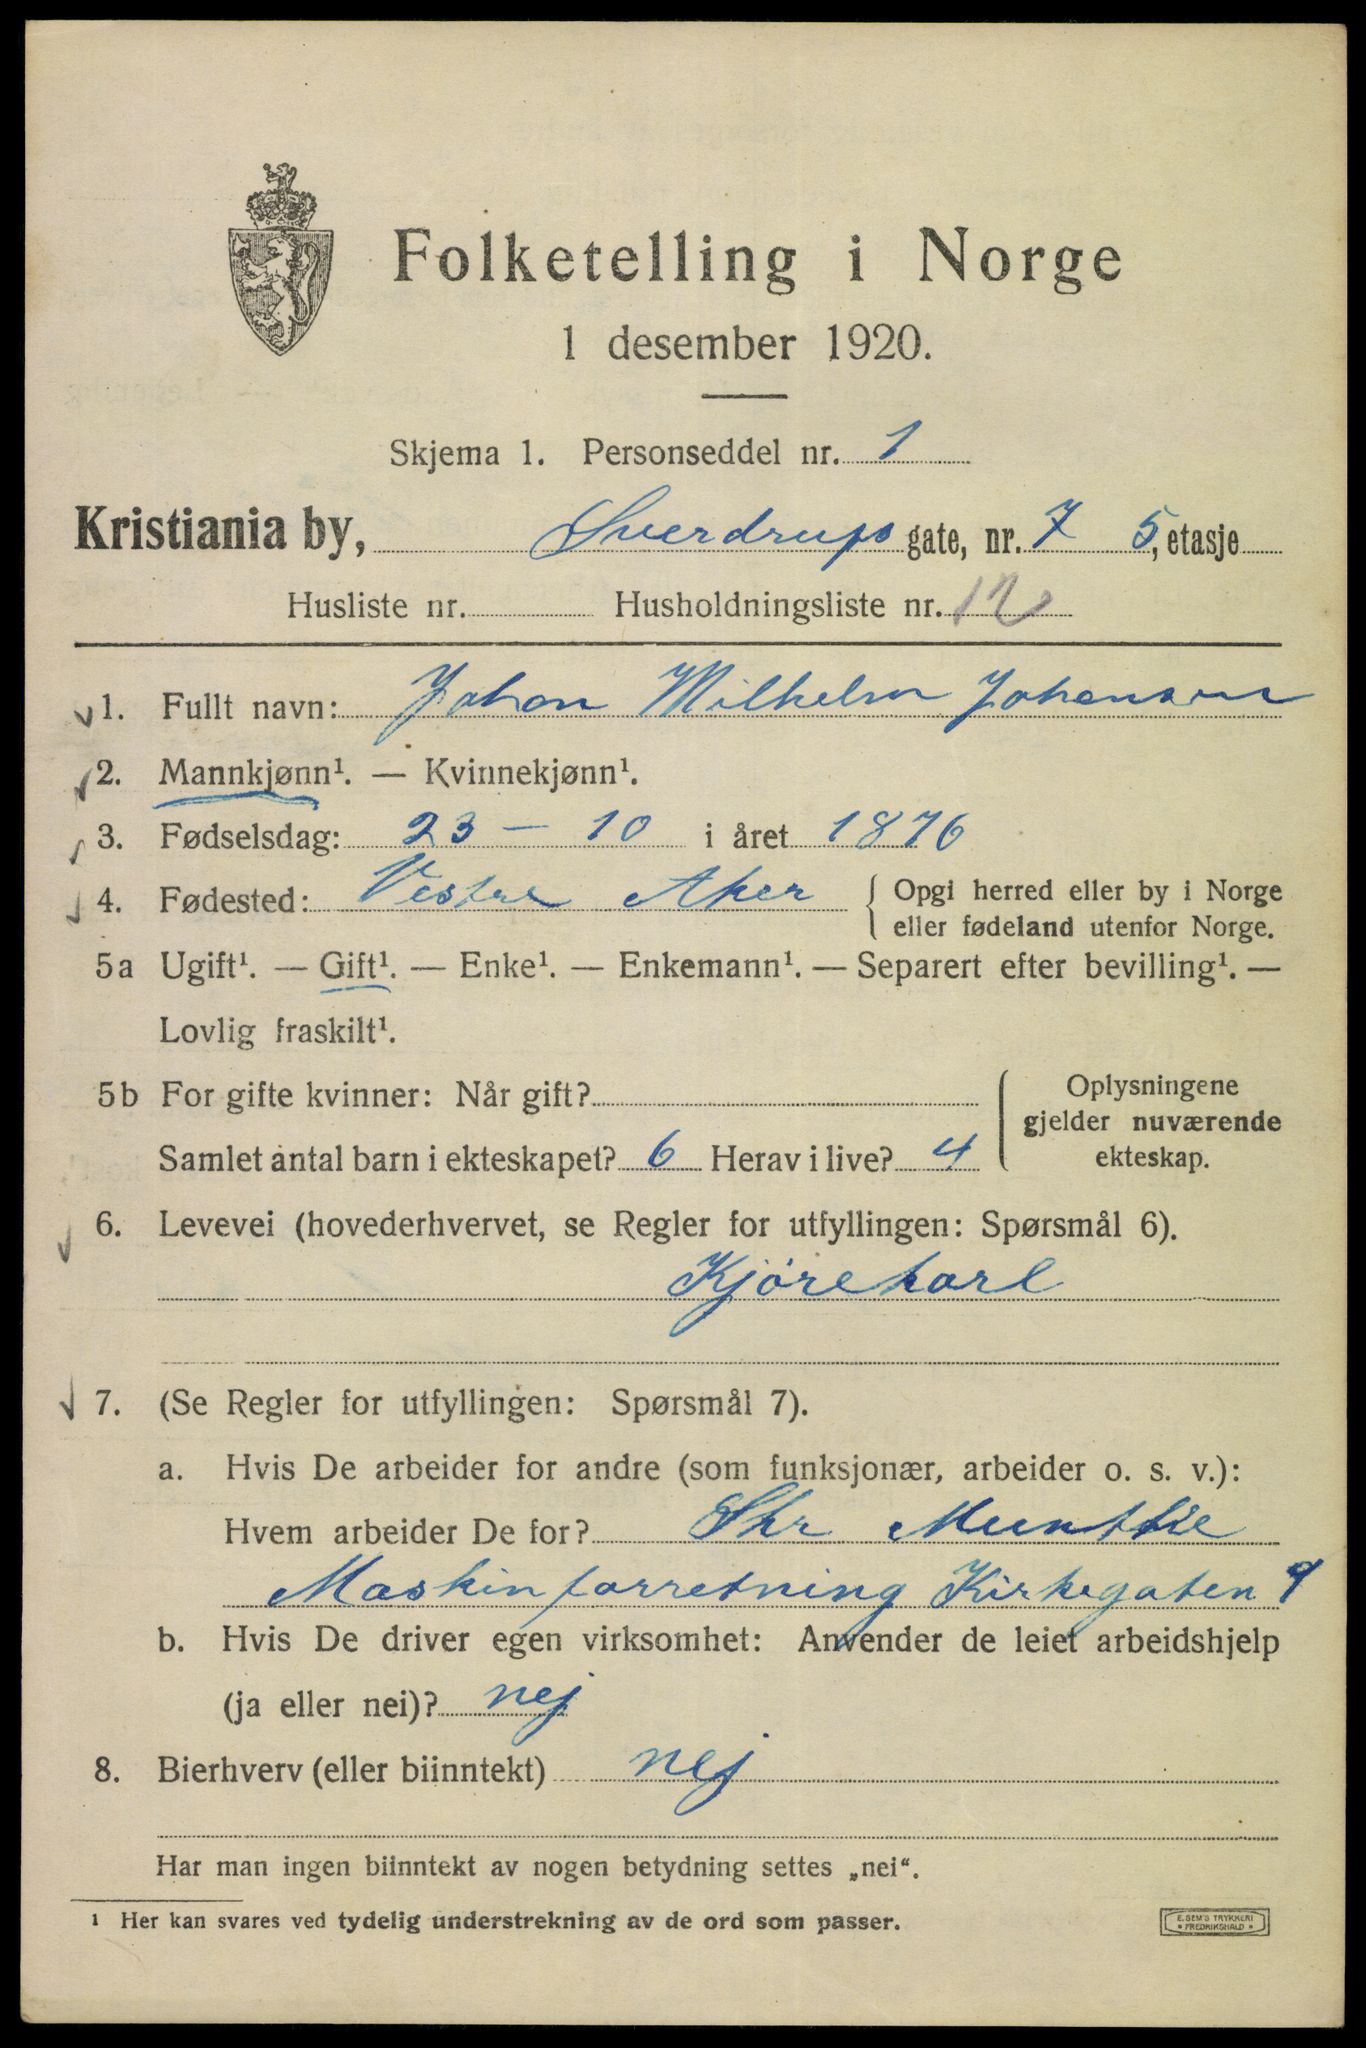 Folketelling i Norge
1 desember 1920.
Skjema 1. Personseddel nr. 1
Kristiania by, Sverdrups gate, nr. 7 5, etasje
Husliste nr. Husholdningsliste nr. 12
1. Fullt navn: Johan Wilhelm Johansen
2. Mannkjønn¹. — Kvinnekjønn¹.
3. Fødselsdag: 23 - 10 i året 1876
4. Fødested: Vestre Aker { Opgi herred eller by i Norge
eller fødeland utenfor Norge.
5a Ugift¹. — Gift¹. — Enke¹. — Enkemann¹. — Separert efter bevilling¹. —
Lovlig fraskilt¹.
5b For gifte kvinner: Når gift?
Samlet antal barn i ekteskapet? 6 Herav i live? 4
Oplysningene
gjelder nuværende
ekteskap.
6. Levevei (hovederhvervet, se Regler for utfyllingen: Spørsmål 6).
Kjørekarl
7. (Se Regler for utfyllingen: Spørsmål 7).
a. Hvis De arbeider for andre (som funksjonær, arbeider o. s. v.):
Hvem arbeider De for? Skr Munthe
Maskinforretning Kirkegaten 9
b. Hvis De driver egen virksomhet: Anvender de leiet arbeidshjelp
(ja eller nei)? nej
8. Bierhverv (eller biinntekt) nej
Har man ingen biinntekt av nogen betydning settes „nei“.
¹ Her kan svares ved tydelig understrekning av de ord som passer.
E. SEM'S TRYKKERI
• FREDRIKSHALD •